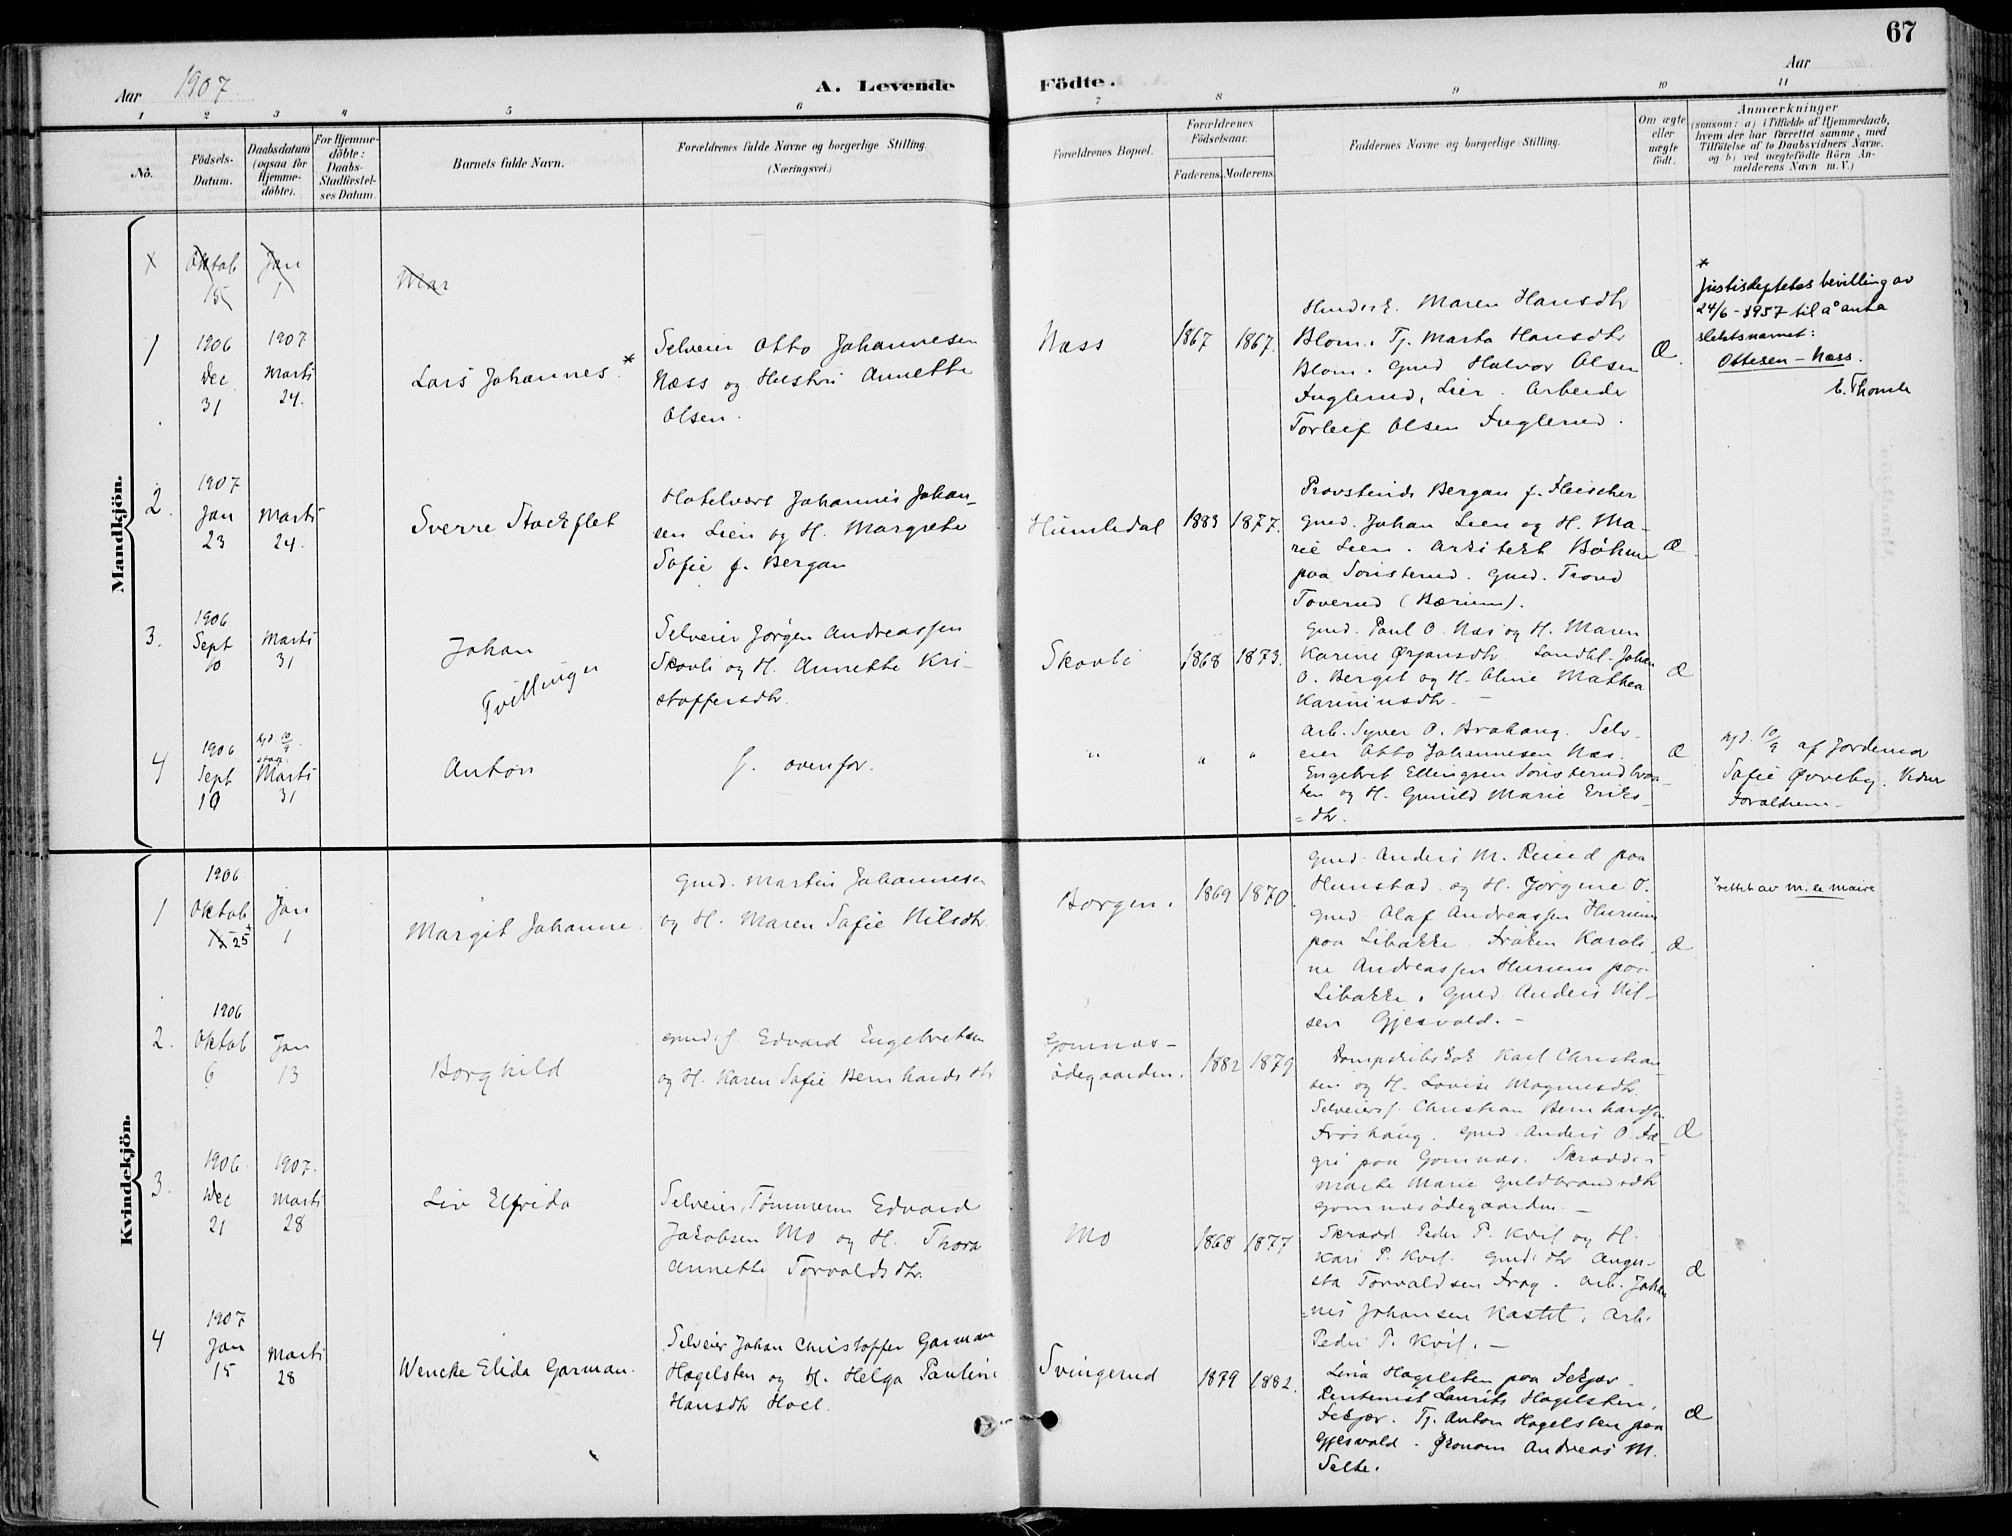 67
Aar 1907
A. Levende Födte.
Aar
1 2 3 4 5 6 7 8 9 10 11
No.
Födsels-
Datum.
Daabsdatum
(ogsaa for
Hjemme-
döbte).
For Hjemme-
döbte:
Daabs-
Stadfæstel-
ses Datum.
Barnets fulde Navn.
Forældrenes fulde Navne og borgerlige Stilling.
(Næringsvei.)
Forældrenes Bopæl.
Forældrenes
Födselsaar.
Faderens. Moderens.
Faddernes Navne og borgerlige Stilling.
Om ægte
eller
uægte
födt.
Anmærkninger
(saasom: a) i Tilfælde af Hjemmedaab,
hvem der har forrettet samme, med
Tilföielse af to Daabsvidners Navne,
og b) ved uægtefödte Börn An-
melderens Navn m. V.)
Mandkjön.
x
Oktob
15
Jan
1
Mar
1
1906
Dec
31
1907
Marts
24.
Lars Johannes. *
Selveier Otto Johannesen
Næss og Hustru Annette
Olsen.
Næss
1867
1867.
Maren Hansdtr
Blom. Tj. Marta Hansdtr
Blom. Gmd Halvor Olsen
Fuglerud, Lier. Arbeider
Torleif Olsen Fuglerud.
Æ.
*
Justisdeptetes bevilling av
24/6-1957 til å anta
slektsnavnet:
Ottesen-Næss.
E. Thomle
2.
1907
Jan
23
Marts
24.
Sverre Stockflet
Hotelvært Johannes Johan-
sen Lien og H. Margrete
Sofie f. Bergan
Humledal
1883
1877.
Bergan f. Fleischer
Gmd. Johan Lien og H. Ma-
rie Lien. Arkitekt Böhme
paa Sønsterud. Gmd. Trond
Toverud (Bærum).
Æ.
3.
1906
Sept
10
Marts
31
Johan
Tvillinger
Selveier Jørgen Andreassen
Skovli og H. Annette Kri-
stoffersdtr.
Skovli
1868
1873.
Gmd. Paul O. Næs og H. Maren
Karine Ørjansdtr. Landhl. Johan
O. Berget og H. Oline Mathea
Æ
4
1906
Sept
10
hjd. 10/9.
stad.
Marts
31
Anton
f. ovenfor.
"
"
"
Arb. Syver O. Brahaug. Selv-
eier Otto Johannesen Næs.
Engebret Ellingsen Sønsterudbraa-
ten og H. Gunild Marie Eriks-
=dtr.
Æ
hjd. 10/9 af Jordemor
Sofie Øvreby. Vidner
Forældrene.
Kvindekjön.
1
1906
Oktob
15 25 +
Jan
1
Margit Johanne.
Gmd. Martin Johannesen
og H. Maren Sofie Nilsdtr.
Borgen.
1869
1870.
Gmd. Anders M. Rund paa
Hunstad og H. Jørgine O.
Gmd Olaf Andreassen Hurum
paa Libakke. Frøken Karoli-
ne Andreassen Hurum paa
Libakke. Gmd Anders Nil-
sen Gjesvold.
Æ
+ rettet av m. le maire
2.
1906
Oktob
6
Jan
13
Borghild
Gmds. Edvard Engebretsen
og H. Karen Sofie Bernhardsdtr
Gomnæs-
ødegaarden.
1882
1879
Dampskibskok Karl Christian-
sen og H. Lovise Magnusdtr.
Selveiers. Christian Bernhardsen
Frøshaug. Gmd Anders O. Fæ-
gri paa Gomnæs. Skrædder-
Marte Marie Guldbrandsdtr
Gomnæsødegaarden.
Æ
3.
1906
Dec
21
1907.
Marts
28
Liv Elfrida
Selveier, Tømmerm Edvard
Jakobsen Mo og H. Thora
Annette Torvaldsdtr.
Mo
1868
1877
Skrædd. Peder P. Kvil og H.
Kari P. Kvil. Gmds dtr Augu-
sta Torvaldsen Frog. Arb. Johan-
=nes Johansen Kastet. Arb.
Peder P. Kvil.
Æ
4
1907
Jan
15
Marts
28
Wencke Elida Garman.
Selveier Johan Christoffer Garman
Hagelsten og H. Helga Pauline
Hansdtr Hoel.
Svingerud
1879
1882.
Lina Hagelsten paa Fekjær.
Rentenist Laurits Hagelsten,
Fekjær. Tj. Anton Hagelsten paa
Gjesvold. Økonom Andreas M.
Selte.
Æ